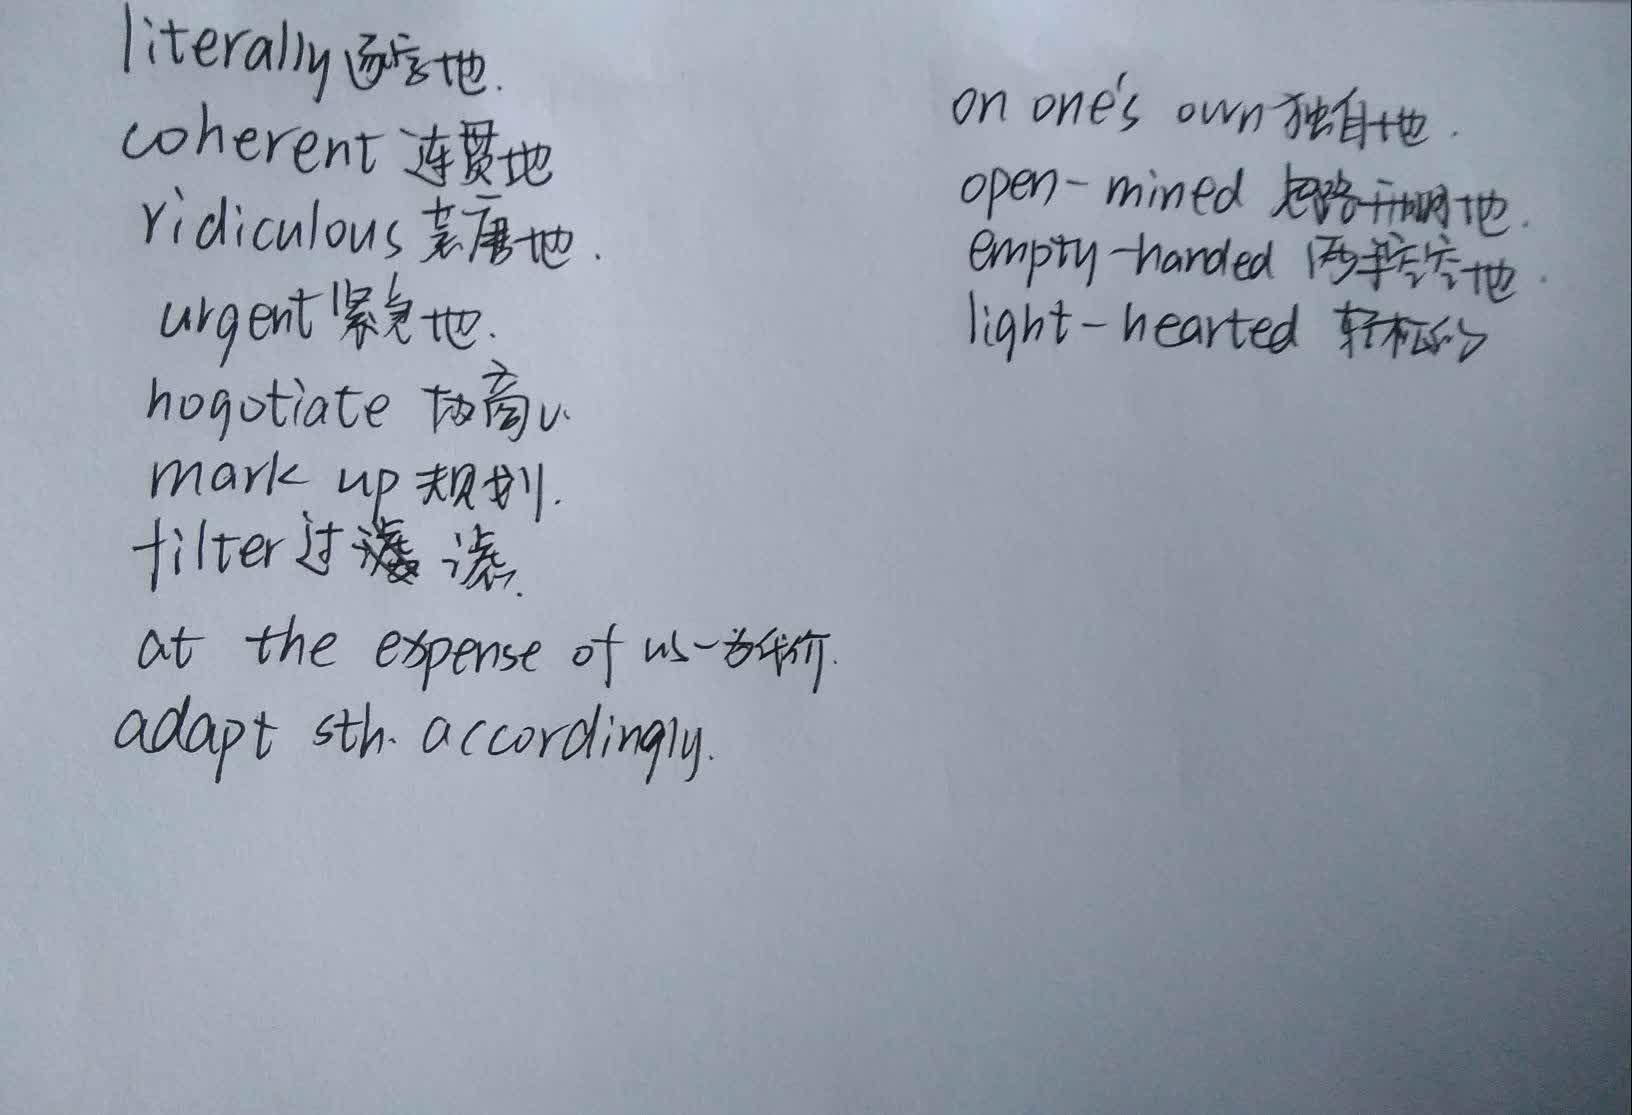 literally 逐字地.
coherent 连贯地
ridiculous 荒唐地.
urgent 紧急地.
hogotiate 协商v.
mark up 规划.
filter 过滤.
at the expense of 以一为代价.
adapt sth. accordingly.
on one's own 独自地.
open-mined 思路开明地.
empty-handed 两手空空地.
light-hearted 轻松的